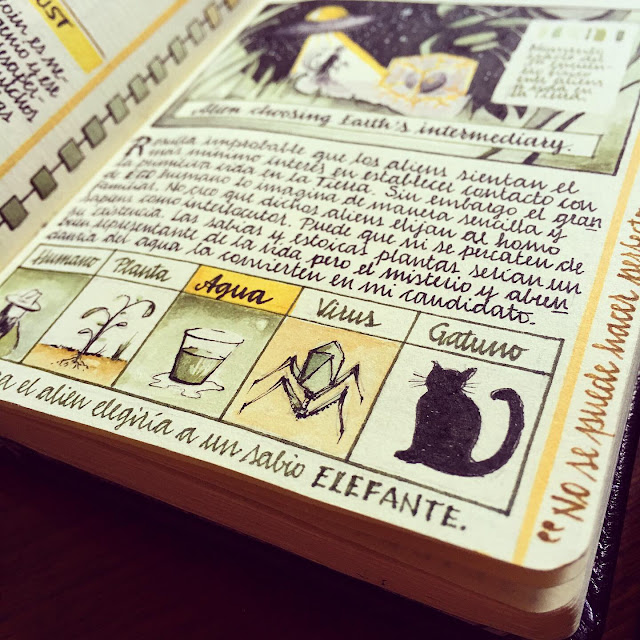 UST
Alien choosing Earth's intermediary.
Resulta improbable que los aliens sientan el
mínimo interés en establecer contacto con
primitiva vida en la Tierra. Sin embargo el gran
ego humano lo imagina de manera sencilla y
familiar. No creo que dichos aliens elijan al homo
sapiens como interlocutor. Puede que ni se percaten de
su existencia. Las sabias y estoicas plantas serían un
buen representante de la vida pero el misterio y abun
dancia del agua la convierten en mi candidato.
Humano Planta Agua Virus Gatuno
el alien elegiría a un sabio ELEFANTE.
“No se puede hacer